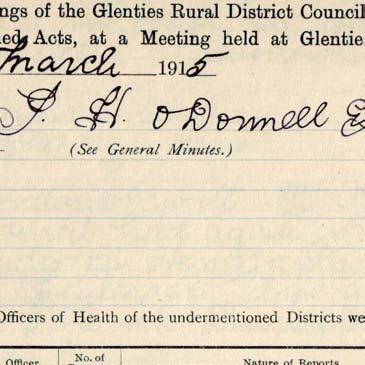 ngs of the Glenties Rural District Council
ned Acts, at a Meeting held at Glentie
March 1915
P. H. O'Donnell E
(See General Minutes.)
Officers of Health of the undermentioned Districts we
Officer. No. of Nature of Reports